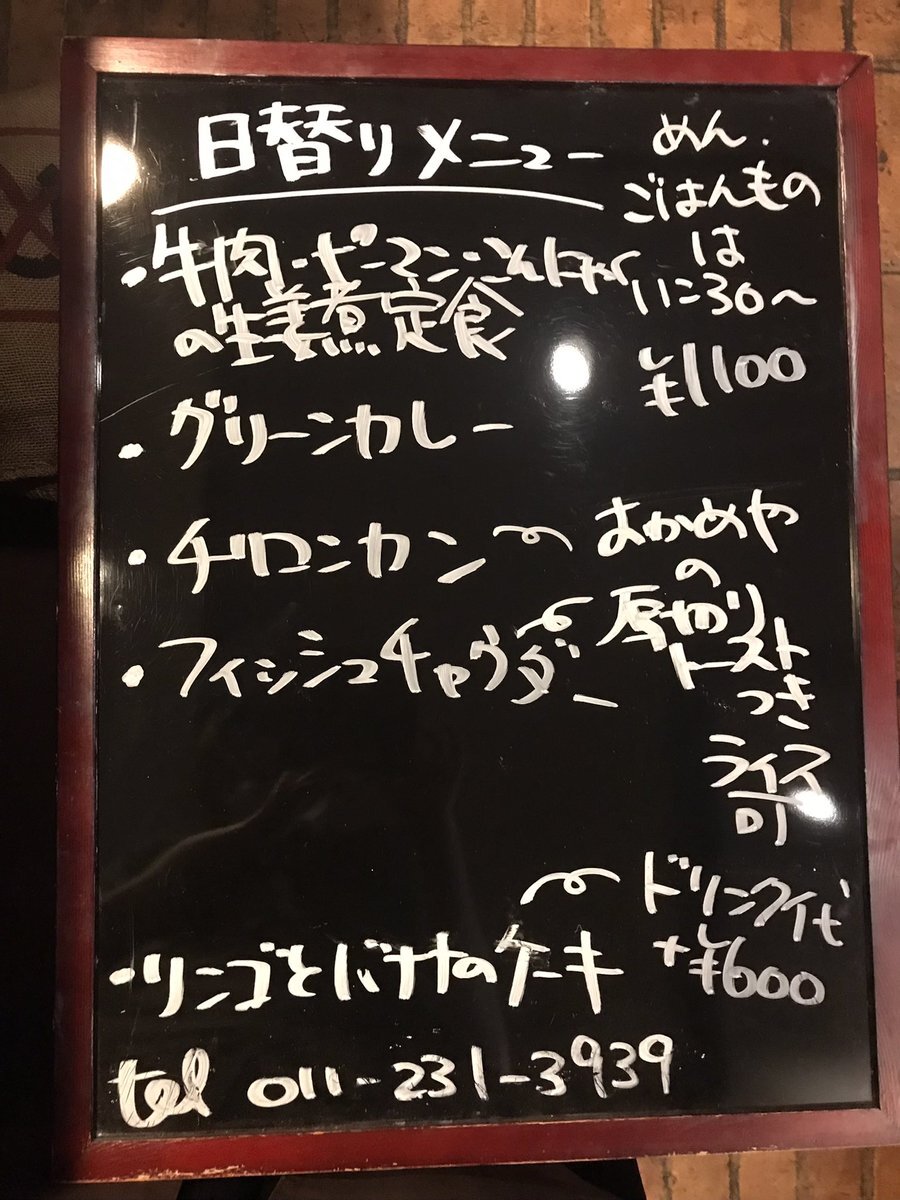 日替りメニュー
・牛肉・ピーマン・こんにゃく
の生姜煮定食
・グリーンカレー
・チロンカン
・フィッシュチャウダー
めん.
ごはんもの
は
11:30〜
¥1100
おかめや
の
厚切り
トースト
つき
ライス
可
・リンゴとバナナのケーキ
ドリンク代
+¥600
tel 011-231-3939